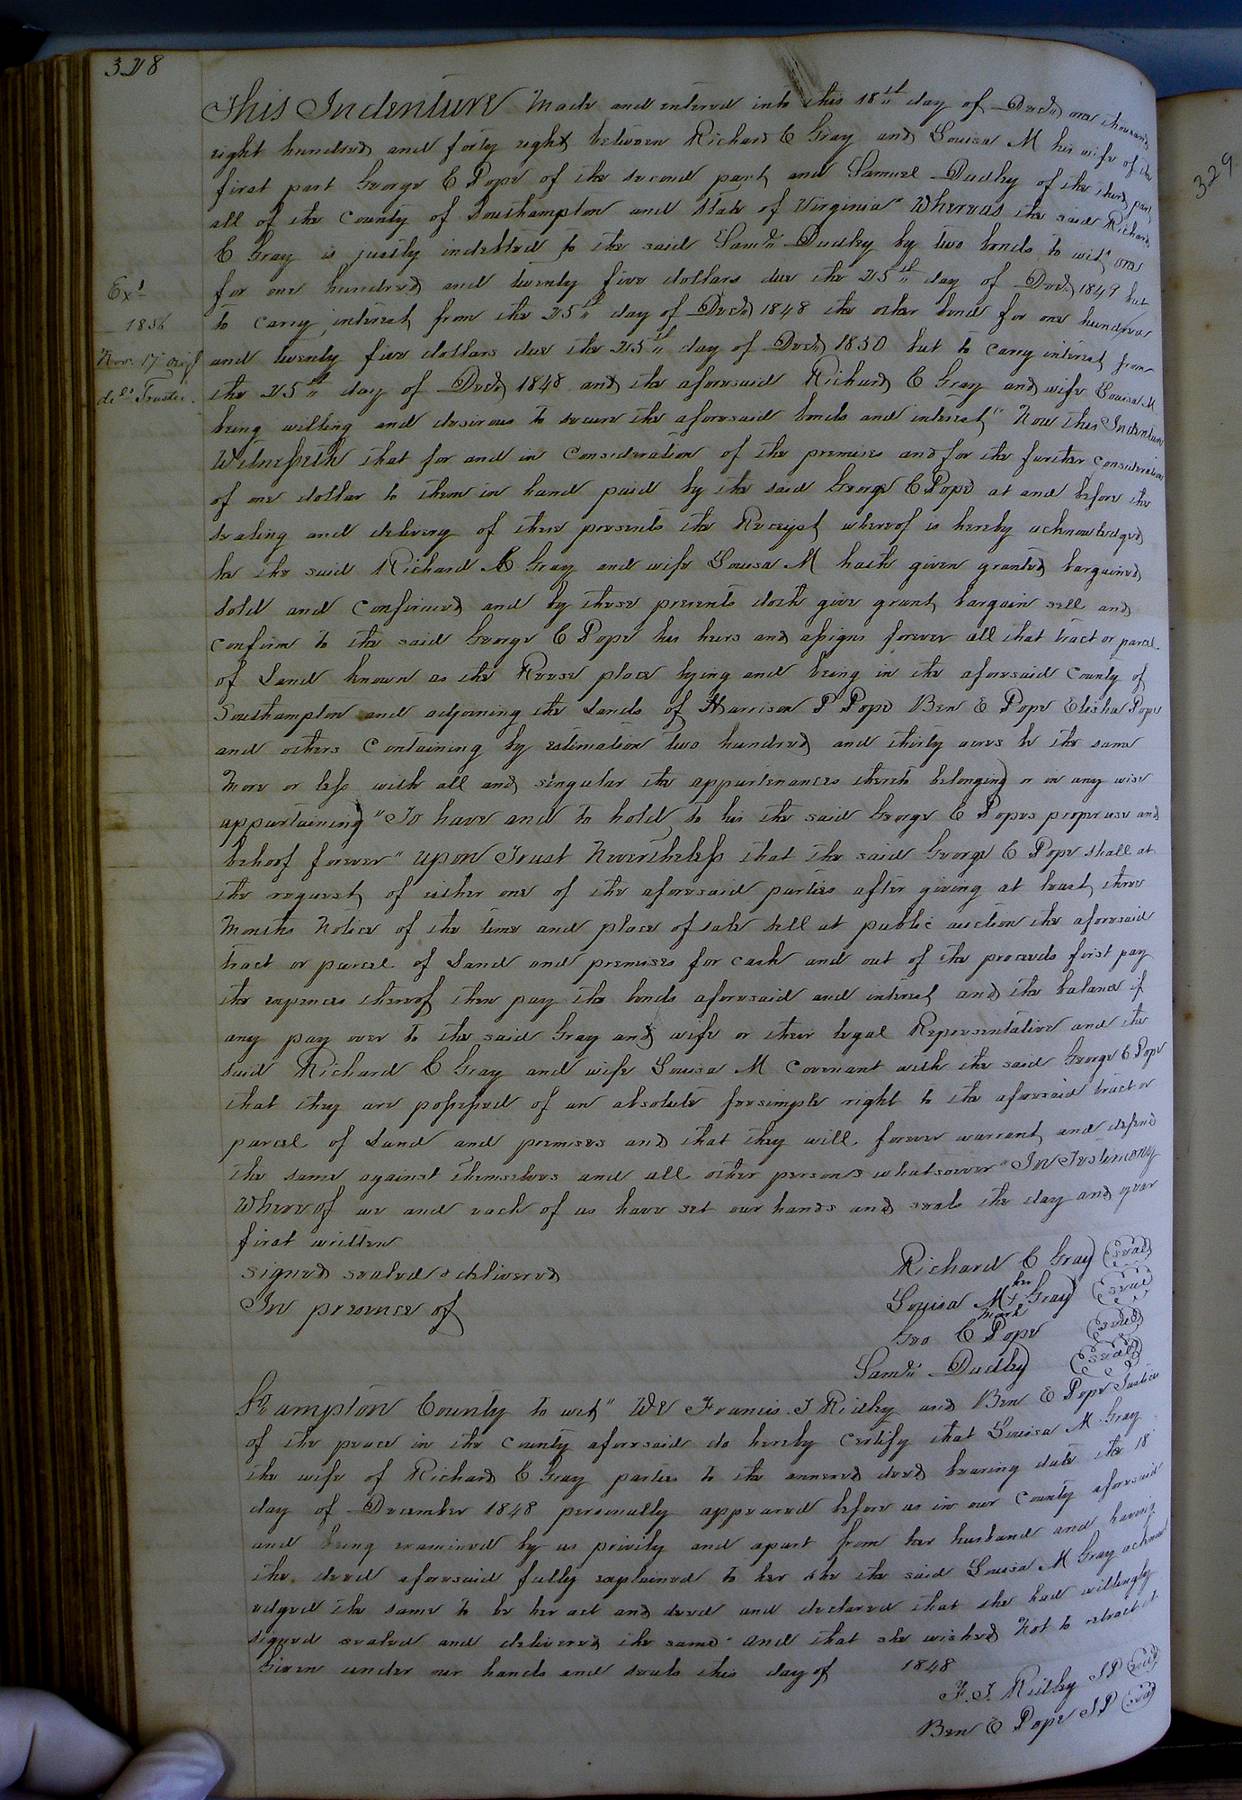 328
This Indenture Made and entered into this 18th day of Decr one thousand
eight hundred and forty eight between Richard C Gray and Louisa M his wife of the
first part George E Pope of the second part and Samuel Dudley of the third part
all of the County of Southampton and State of Virginia" Whereas the said Richard
C Gray is justly indebted to the said Saml Dudley by two bonds to wit, one
for one hundred and twenty five dollars due the 25th day of Decr 1849 but
to carry interest from the 25th day of Decr 1848 the other bond for one hundred
and twenty five dollars due the 25th day of Decr 1850 but to carry interest from
the 25th day of Decr 1848 and the aforesaid Richard C Gray and wife Louisa M
being willing and desirous to secure the aforesaid bonds and interest" Now this Indenture
Witnesseth that for and in Consideration of the premises and for the further consideration
of one dollar to them in hand paid by the said George E Pope at and before the
sealing and delivery of these presents the Receipt whereof is hereby acknowledged
he the said Richard C Gray and wife Louisa M hath given granted bargained
Sold and Confirmed and by these presents doth give grant bargain sell and
confirm to the said George E Pope his heirs and assigns forever all that tract or parcel
of Land known as the Reese place lying and being in the aforesaid County of
Southampton and adjoining the Lands of Harrison P Pope Ben E Pope Elisha Pope
and others Containing by estimation two hundred and thirty acres be the same
More or less with all and singular the appurtenances thereto belonging or in any wise
appertaining "To have and to hold to his the said George E Popes proper use and
behoof forever" Upon Trust Nevertheless that the said George E Pope shall at
the request of either one of the aforesaid parties after giving at least three
Months Notice of the time and place of sale sell at public auction the aforesaid
tract or parcel of Land and premises for cash and out of the proceeds first pay
the expences thereof then pay the bonds aforesaid and interest and the balance if
any pay over to the said Gray and wife or their legal Representative and the
said Richard C Gray and wife Louisa M Covenant with the said George E Pope
that they are possessed of an absolute feesimple right to the aforesaid tract or
parcel of Land and premises and that they will forever warrant and defend
the same against themselves and all other persons whatsoever" In Testimony
Whereof we and each of us have set our hands and seals the day and year
first written
signed sealed & delivered
In presence of
Richard C Gray (seal)
Louisa M her x mark Gray (seal)
Geo E Pope (seal)
Saml Dudley (seal)
Sohampton County to wit" We Francis T Ridley and Ben E Pope Justices
of the peace in the County aforesaid do hereby Certify that Louisa M Gray
the wife of Richard C Gray parties to the annexed deed bearing date the 18
day of December 1848 personally appeared before us in our County aforesaid
and being examined by us privily and apart from her husband and having
the deed aforesaid fully explained to her she the said Louisa M Gray acknow
edged the same to be her act and deed and declared that she had willingly
signed sealed and delivered the same" and that she wished Not to retract it
Given under our hands and seals this day of 1848
F. T. Ridley JP (seal)
Ben E Pope JP (seal)
Exd
1856
Nov. 17 origl
deld Trustee.
329